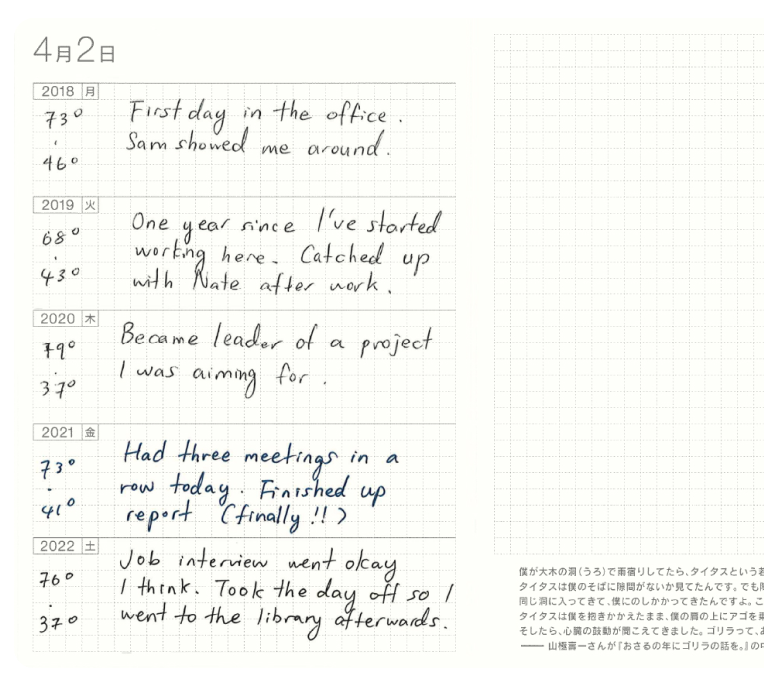 4月2日
2018 月
73°
46°
First day in the office.
Sam showed me around.
2019 火
68°
43°
One year since I've started
working here. Catched up
with Nate after work.
2020 木
79°
37°
Became leader of a project
I was aiming for.
2021 金
73°
41°
Had three meetings in a
row today. Finished up
report (finally!!)
2022 土
76°
37°
Job interview went okay
I think. Took the day off so I
went to the library afterwards.
僕が大木の洞(うろ)で雨宿りしてたら、タイタスという
タイタスは僕のそばに隙間がないか見てたんです。でも
同じ洞に入ってきて、僕にのしかかってきたんですよ。こ
タイタスは僕を抱きかかえたまま、僕の肩の上にアゴを
そしたら、心臓の鼓動が聞こえてきました。ゴリラって、
—— 山極寿一さんが『おさるの年にゴリラの話を。』の